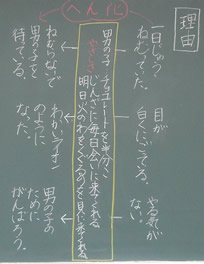 理由
へん化
一日じゅう
ねむっていた。
目が
白くにごってる。
やる気が
ない。
男の子 チョコレートを半分こ
やさしさ
じんざに毎日会いに来てくれる
明日火のわをくぐるのを見に来てくれる
ねむらないで
男の子を
待っている。
わかいライオン
のように
なった。
男の子の
ために
がんばろう。